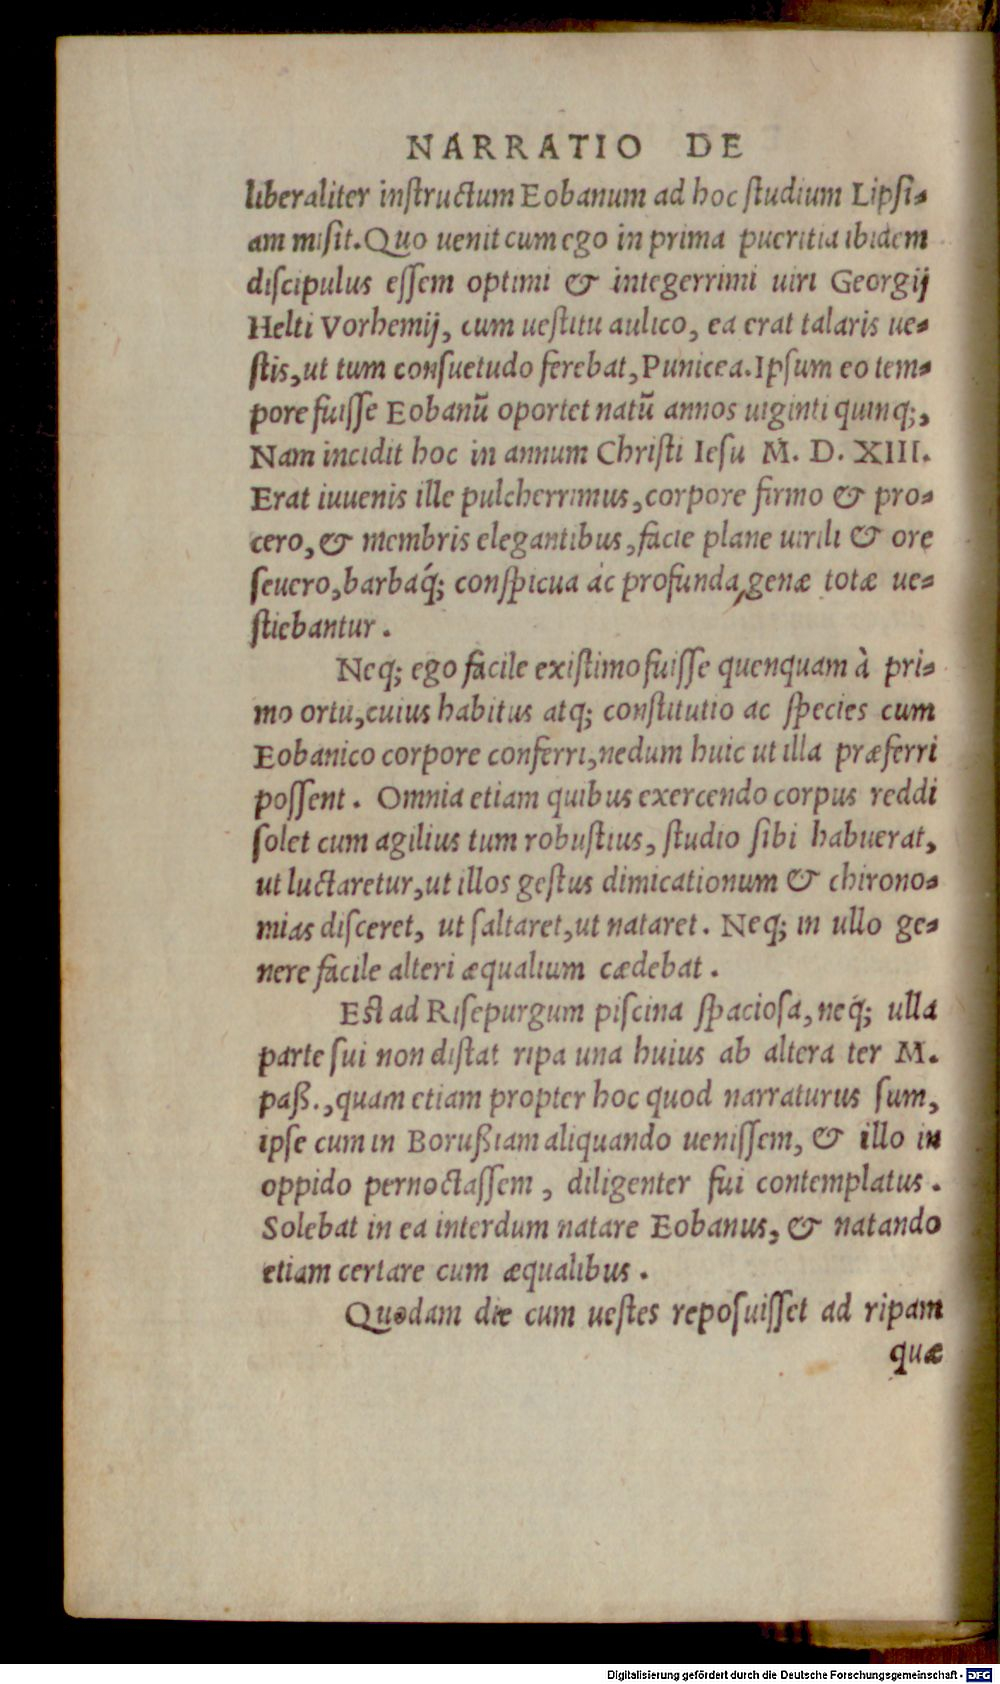 NARRATIO DE
liberaliter instructum Eobanum ad hoc studium Lipsi-
am misit. Quo uenit cum ego in prima pueritia ibidem
discipulus essem optimi & integerrimi uiri Georgij
Helti Vorhemij, cum uestitu aulico, ea erat talaris ue-
stis, ut tum consuetudo ferebat, Punicea. Ipsum eo tem-
pore fuisse Eobanū oportet natū annos uiginti quinq;,
Nam incidit hoc in annum Christi Iesu M. D. XIII.
Erat iuuenis ille pulcherrimus, corpore firmo & pro-
cero, & membris elegantibus, facie plane uirili & ore
seuero, barbaq́; conspicua ac profunda, genæ totæ ue-
stiebantur.
Neq; ego facile existimo fuisse quenquam à pri-
mo ortu, cuius habitus atq; constitutio ac species cum
Eobanico corpore conferri, nedum huic ut illa præferri
possent. Omnia etiam quibus exercendo corpus reddi
solet cum agilius tum robustius, studio sibi habuerat,
ut luctaretur, ut illos gestus dimicationum & chirono-
mias disceret, ut saltaret, ut nataret. Neq; in ullo ge-
nere facile alteri æqualium cædebat.
Est ad Risepurgum piscina spaciosa, neq́; ulla
parte sui non distat ripa una huius ab altera ter M.
paß., quam etiam propter hoc quod narraturus sum,
ipse cum in Borußiam aliquando uenissem, & illo in
oppido pernoctassem, diligenter fui contemplatus.
Solebat in ea interdum natare Eobanus, & natando
etiam certare cum æqualibus.
Quodam die cum uestes reposuisset ad ripam
quæ
Digitalisierung gefördert durch die Deutsche Forschungsgemeinschaft - DFG